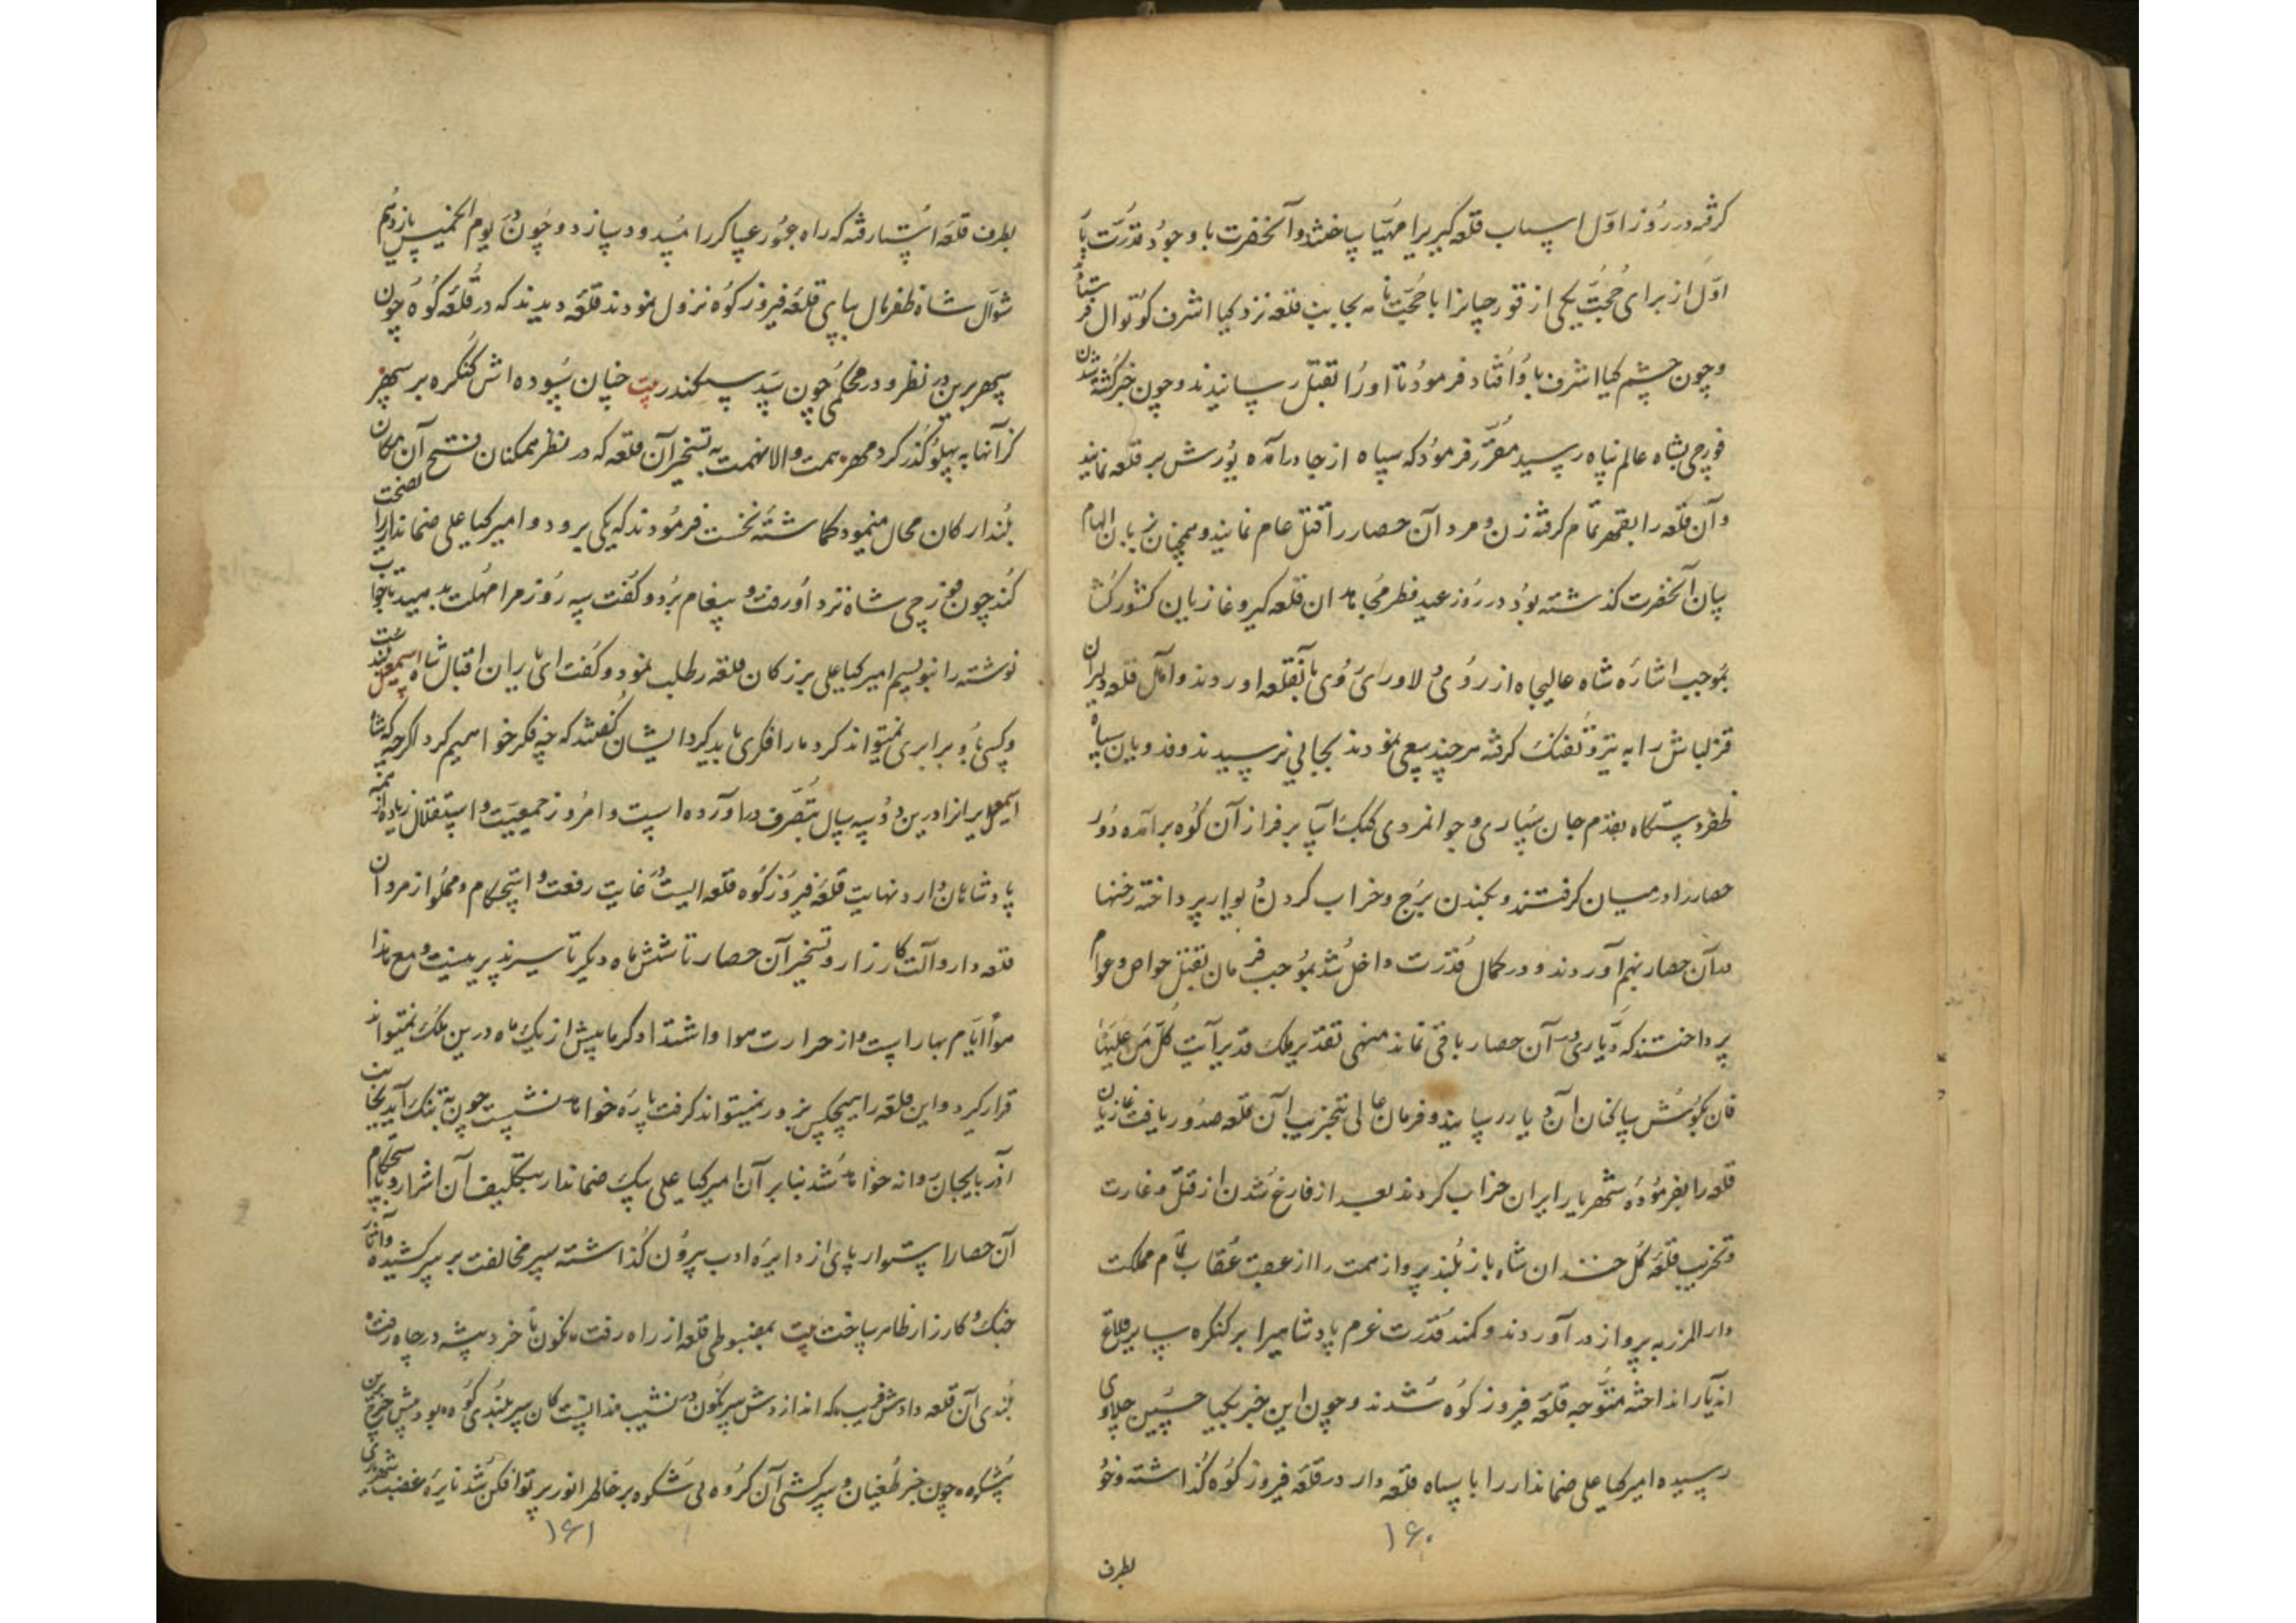 کرفته در روز اول اسباب قلعه کیری را مهیا ساختند و آنحضرت با وجود قدرت با
اول از برای حجت یکی از قورچیانرا با حجت نامه بجانب قلعه نزد کیا اشرف کوتوال فرستاد
و چون چشم کیا اشرف باو افتاد فرمود تا او را بقتل رسانیدند و چون خبر کشته شدن
قورچی بشاه عالم پناه رسید مقرر فرمود که سپاه از جا درآمده یورش بر قلعه نمایند
و آن قلعه را بقهر تمام کرفته زن و مرد آن حصار را قتل عام نمایند و همچنان بزبان الهام
بیان آنحضرت کذشته بود در روز عید فطر مجاهدان قلعه کیر و غازیان کشورکشا
بموجب اشاره شاه عالیجاه از روی دلاوری روی بآنقلعه اوردند و اهل قلعه دلیران
قزلباش را به تیر و تفنک کرفته هر چند سعی نمودند بجایی نرسیدند و فدویان سپاه
ظفر دستکاه بقدم جان سپاری و جوانمردی کبک آسا بر فراز آن کوه برآمده دور
حصار را در میان کرفتند و بکندن برج و خراب کردن دیوار پرداخته رخنها
در آن حصار بهم آوردند و در کمال قدرت داخل شده بموجب فرمان بقتل خواص و عوام
پرداختند که دیاری در آن حصار باقی نماند منهی تقدیر ملک قدیر آیت کل من علیها
فان بکوش ساکنان آن دیار رسانید و فرمان عالی بتخریب آن قلعه صدور یافت غازیان
قلعه را بفرموده شهریار ایران خراب کردند بعد از فارغ شدن از قتل و غارت
و تخریب قلعه کل خندان شاه باز بلند پرواز همت را از عقب عقاب تمام مملکت
دارالمرز به پرواز درآوردند و کمند قدرت عزم پادشاهیرا بر کنکره سایر قلاع
اندیار انداخته متوجه قلعه فیروز کوه شدند و چون این خبر بکیا حسین چلاوی
رسیده امیر کیا علی ضماندار را با سپاه قلعه دار در قلعه فیروز کوه کذاشته و خود
۱۶۰
بطرف
بطرف قلعه استا رفته که راه عبور عساکر را مسدود سازد و چون در یوم الخمیس یازدهم
شوال شاه ظفرمال بپای قلعه فیروز کوه نزول نمودند قلعه دیدند که در قله کوه چون
سپهر برین در نظر و در محکمی چون سد سکندر بیت چنان سوده اش کنکره بر سپهر
کز آنها به پهلو کذر کرد مهر همت والا نهمت به تسخیر آن قلعه که در نظر ممکنان فتح آن مکان
بلند ارکان محال مینمود کماشته نخست فرمودند که یکی برود و امیر کیا علی ضماندار را نصیحت
کند چون قورچی شاه نزد او رفت و پیغام برد و کفت سه روز مرا مهلت بدهید تا جواب
نوشته را بنویسم امیر کیا علی بزرکان قلعه را طلب نمود و کفت ای یاران اقبال شاه اسمعیل بلند است
و کسی باو برابری نمیتواند کرد ما را فکری باید کرد ایشان کفتند که چه فکر خواهیم کرد اکرچه که شاه
اسمعیل ایرانرا درین دو سه سال بتصرف درآورده است و امروز جمعیت و استقلال زیاده از همه
پادشاهان دارد نهایت قلعه فیروز کوه قلعه ایست در غایت رفعت و استحکام و مملو از مردان
قلعه دار و آلت کارزار و تسخیر آن حصار تا شش ماه دیکر تاسیرپذیر نیست و مع هذا
هوا ایام بهار است و از حرارت هوا و اشتداد کرما بیش از یک ماه درین ملک نمیتواند
قرار کیرد و این قلعه را هیچکس بزور نمیتواند کرفت پاره خواهد نشست چون به تنک آید بجانب
آذربایجان روانه خواهد شد بنابر آن امیر کیا علی سک ضماندار بتکلیف آن اشرار و باستحکام
آن حصار استوار پای از دایره ادب بیرون کذاشته سپر مخالفت بر سر کشیده و آثار
جنک و کارزار ظاهر ساخت بیت بمضبوطی قلعه از راه رفت نکون با خرد پیشه در چاه رفت
بلندی آن قلعه دادش فریب که اندازدش سرنکون در نشیب ندانست کان سربلندی کوه بود پیش
پرشکوه چون خبر طغیان و سرکشی آن کروه بی شکوه بر خاطر انور پرتو افکن شد نایره غضب شهریاری
۱۶۱